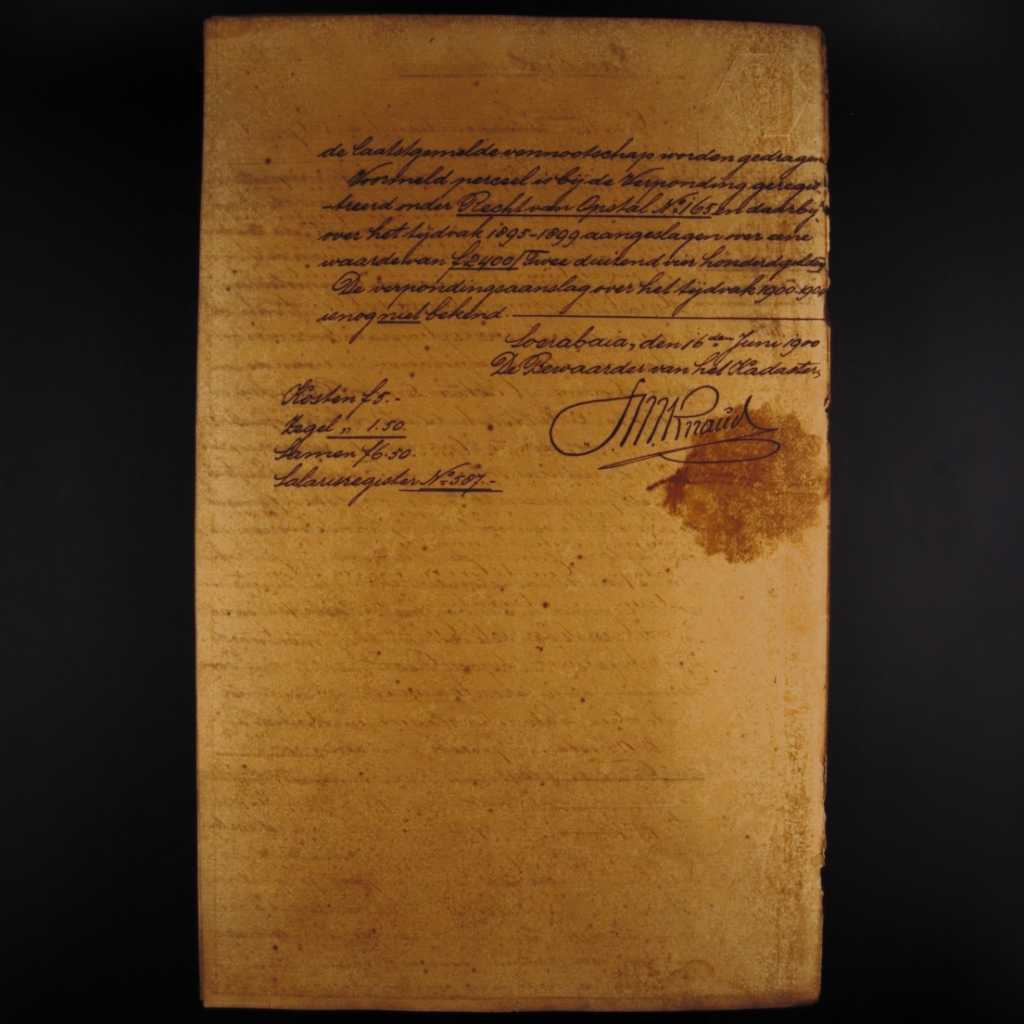 de laatstgemelde vennootschap worden gedragen
Voormeld perceel is bij de Verponding geregis-
-treerd onder Recht van Opstal No 165 en daarbij
over het tijdvak 1895-1899 aangeslagen over eene
waarde van f 2400/ Twee duizend vier honderd gulden
De verpondingsaanslag over het tijdvak 1900-1904
is nog niet bekend.
Soerabaia, den 16den Juni 1900
De Bewaarder van het Kadaster,
Knaud
Kosten f 5.-
Zegel " 1.50.
Samen f 6.50.
Salarisregister No 587.-